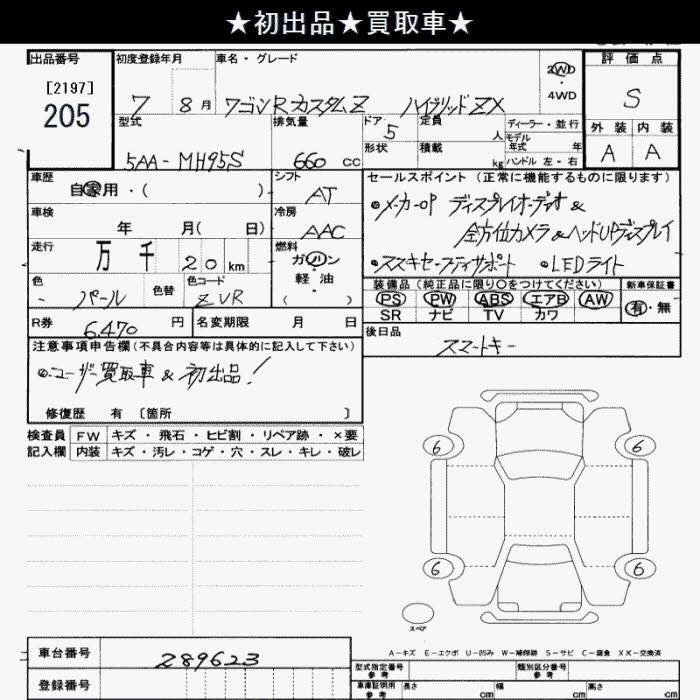 ★初出品★買取車★
出品番号
[2197]
205
初度登録年月
7 8月
車名・グレード
ワゴンRカスタムZ ハイブリッドZX
2WD
・
4WD
評価点
S
外装 内装
A A
型式
5AA-MH95S
排気量
660 cc
ドア 5
形状
定員 人
積載 kg
ディーラー・並行
モデル年式 年
ハンドル 左・右
車歴
自家用・( )
シフト
AT
車検
年 月( 日)
冷房
AAC
走行
万 千 20 km
燃料
ガソリン
・
軽油
( )
色
パール
色替
色コード
ZVR
R券
6,470 円
名変期限 月 日
セールスポイント(正常に機能するものに限ります)
◉メーカーOP ディスプレイオーディオ&
全方位カメラ&ヘッドUPディスプレイ
◉スズキセーフティサポート ◉LEDライト
装備品(純正品に限り○をつけてください)
PS PW ABS エアB AW
SR ナビ TV カワ
新車保証書
有・無
後日品
スマートキー
注意事項申告欄(不具合内容等は具体的に記入して下さい)
◉ユーザー買取車&初出品!
修復歴 有 〔箇所 〕
検査員 FW キズ・飛石・ヒビ割・リペア跡・×要
記入欄 内装 キズ・汚レ・コゲ・穴・スレ・キレ・破レ
6 6
6 6
スペア
A-キズ E-エクボ U-凹み W-補修跡 S-サビ C-腐食 XX-交換済
車台番号
289623
登録番号
型式指定番号
参考
類別区分番号
参考
車庫証明用
参考
長さ cm 幅 cm 高さ cm